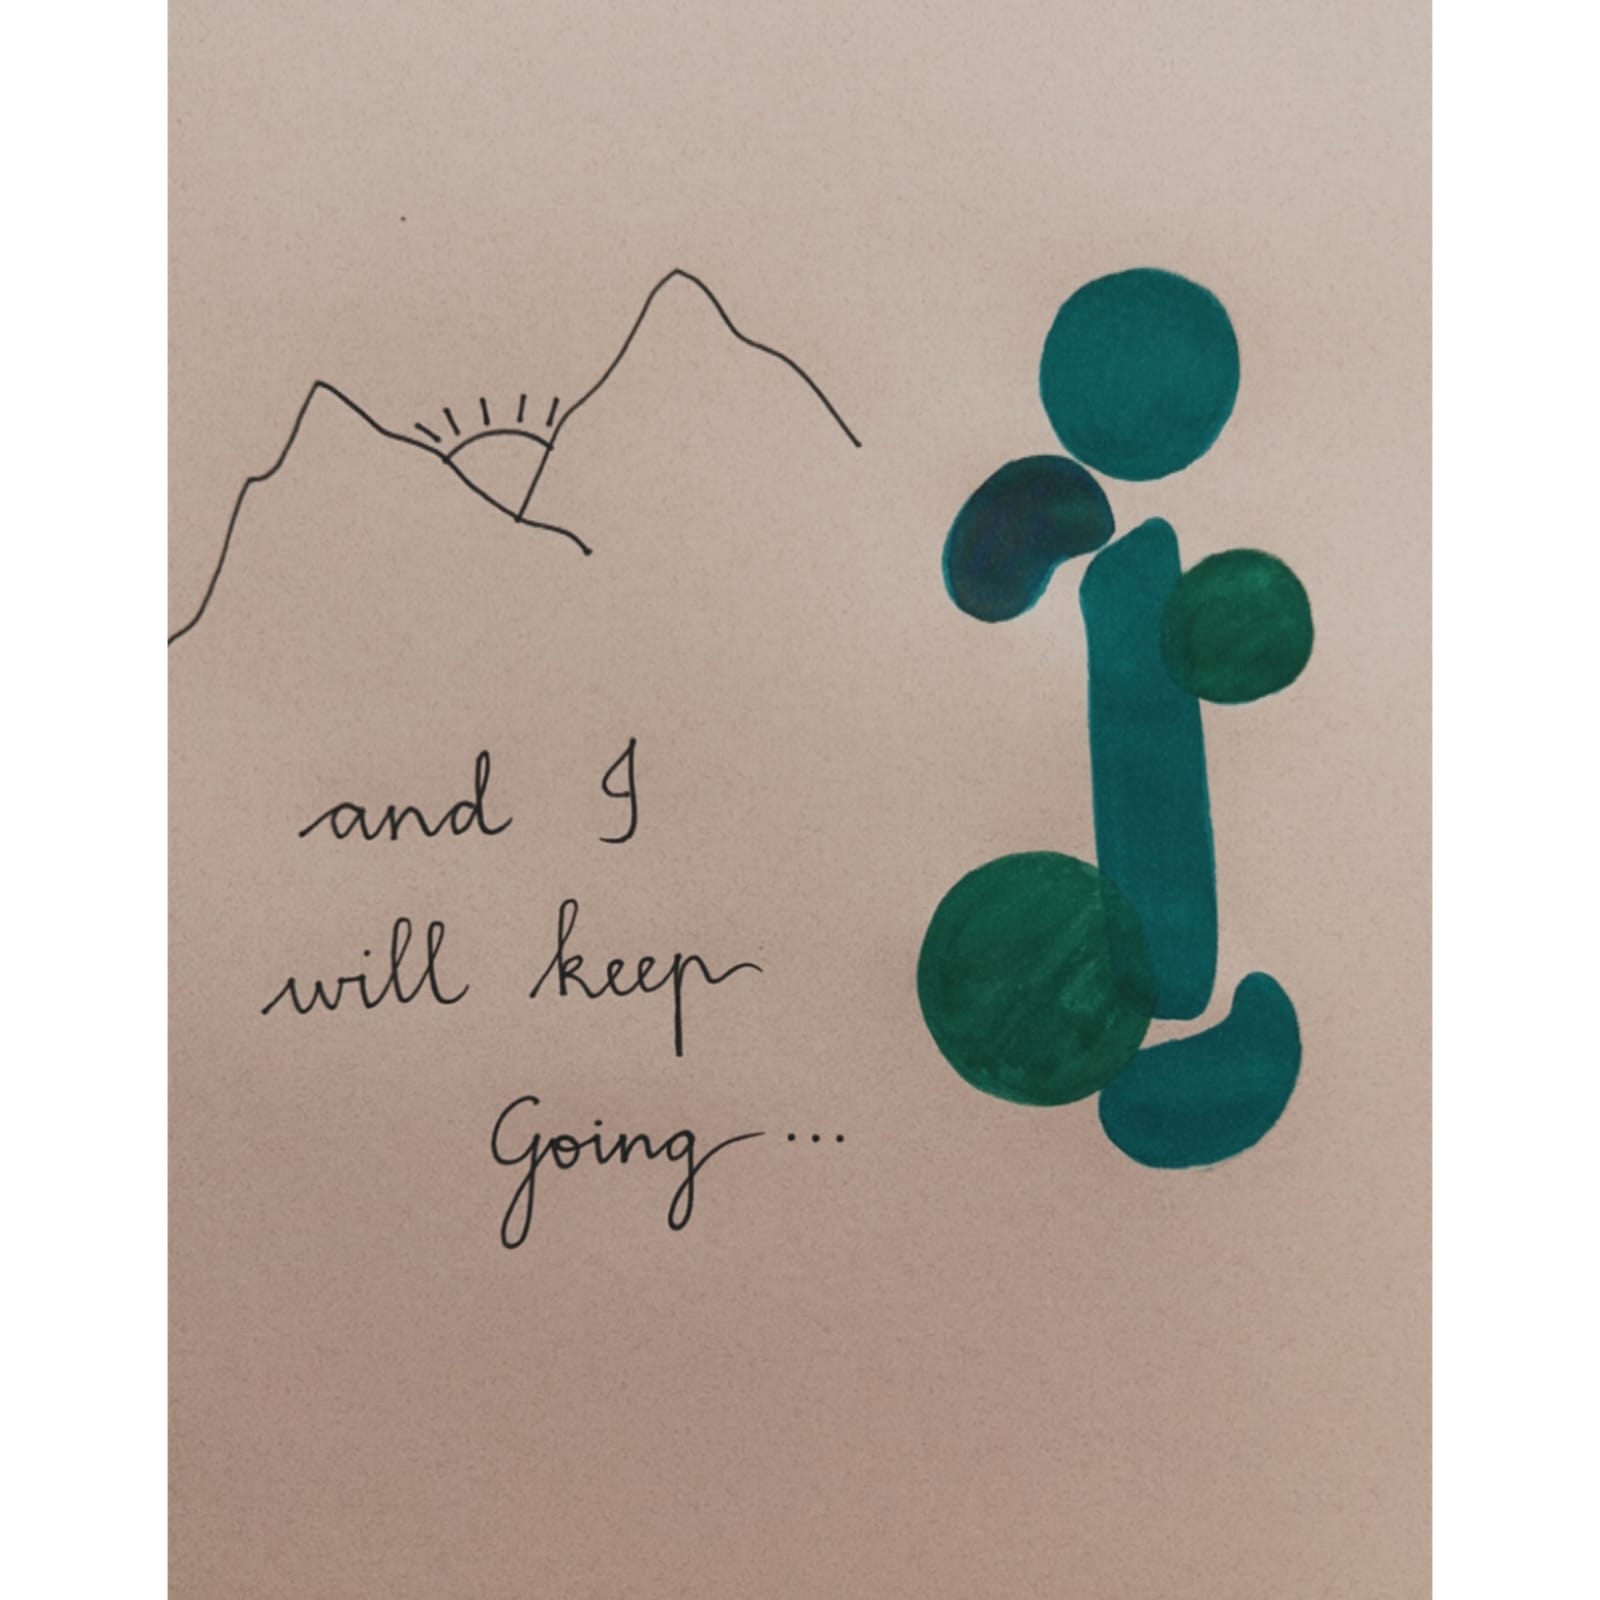 and I
will keep
Going...